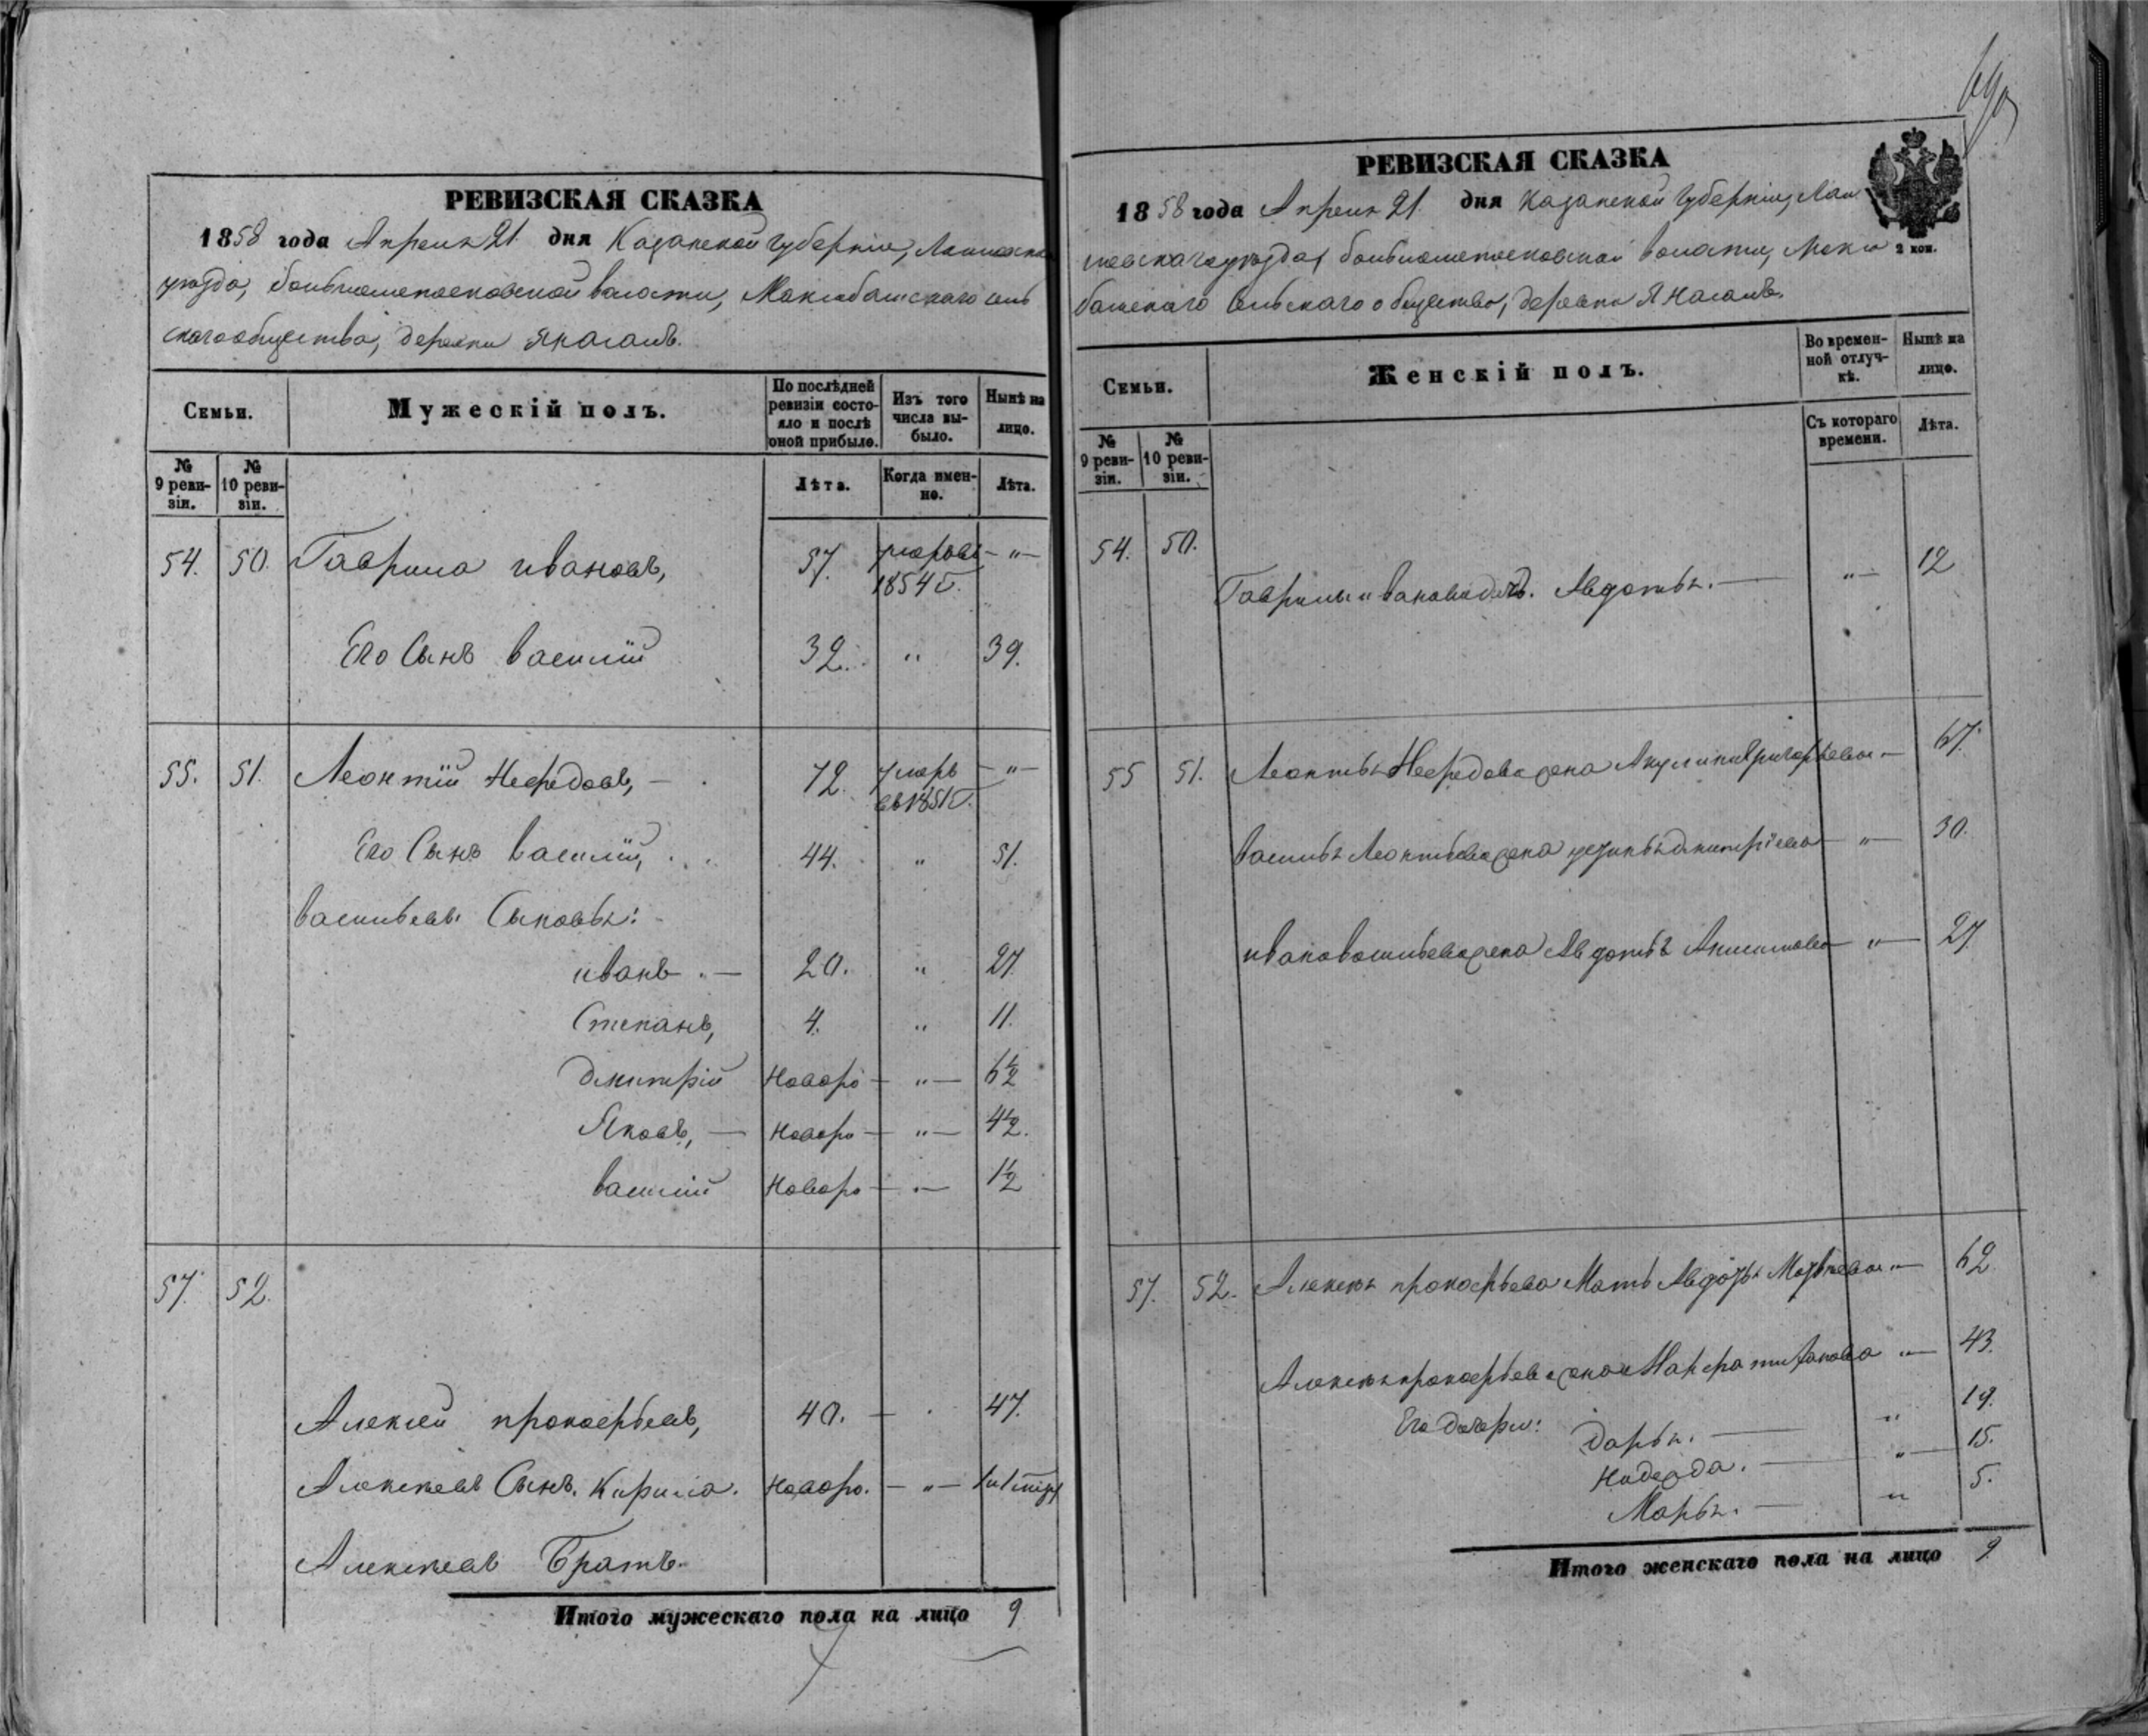 РЕВИЗСКАЯ СКАЗКА
1858 года Апреля 21 дня Казанской губернии, Лаишевска
уезда, волости, сель
скаго общества, деревни Янасалъ.
Семьи.
Мужескій полъ.
По послѣдней ревизіи состояло и послѣ оной прибыло.
Изъ того числа выбыло.
Нынѣ на лицо.
№ 9 ревизіи.
№ 10 ревизіи.
Лѣта.
Когда именно.
Лѣта.
54. 50. Гаврила ивановъ, 57. умеръ въ 1854 г. - " -
Его Сынъ василій 32. " 39.
55. 51. Леонтій Нефедовъ, - 72. умеръ въ 1851 г. - " -
Его Сынъ василій, 44. " 51.
васильевы Сыновья:
иванъ. - 20. " 27.
Степанъ, 4. " 11.
дмитрій Новоро - " - 6½
Яковъ, - Новоро - " - 4½.
василій Новоро - " - 1½
57. 52.
Алексей прокофьевъ, 40. - " 47.
Алексеевъ Сынъ. Кирила. Новоро. - " -
Алексеевъ Братъ.
Итого мужескаго пола на лицо 9
РЕВИЗСКАЯ СКАЗКА
1858 года Апреля 21 дня Казанской губернии, Лаи
шевскаго уезда, волости,
башскаго сельскаго общества, деревни Янасалъ.
2 коп.
Семьи.
Женскій полъ.
Во временной отлучкѣ.
Нынѣ на лицо.
№ 9 ревизіи.
№ 10 ревизіи.
Съ котораго времени.
Лѣта.
54. 50. Гаврилы иванова дочь. Авдотья. - " - 12
55 51. Леонтья Нефедова жена Акулина Григорьева - 67.
василья Леонтьева жена дмитріева - " - 30.
ивана васильева жена Авдотья - " - 27.
57. 52. Алексея прокофьева Мать Авдотья Матвеева " - 62.
Алексея прокофьева жена " - 43.
Его дочери: Дарья. - " 19.
Надежда. - " - 15.
Марья. - " 5.
Итого женскаго пола на лицо 9